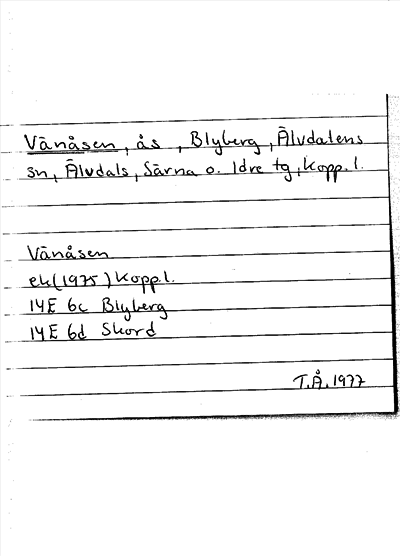 Vänåsen, ås, Blyberg, Älvdalens
sn, Älvdals, Särna o. Idre tg, Kopp.l.
Vänåsen
ek (1975) Kopp.l.
14E 6c Blyberg
14E 6d Skord
T.Å. 1977